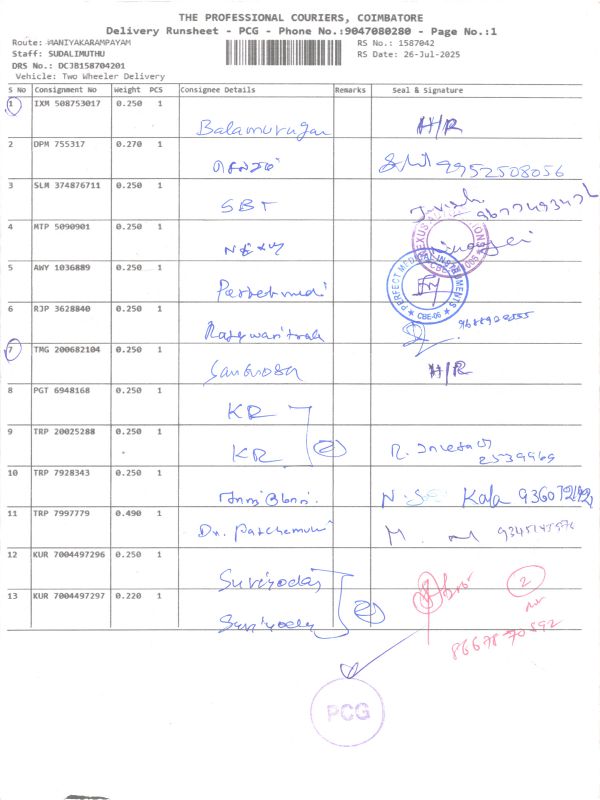 THE PROFESSIONAL COURIERS, COIMBATORE
Delivery Runsheet - PCG - Phone No.:9047080280 - Page No.:1
Route: MANIYAKARAMPAYAM
RS No.: 1587042
Staff: SUDALIMUTHU
RS Date: 26-Jul-2025
DRS No.: DCJB158704201
Vehicle: Two Wheeler Delivery
S No Consignment No Weight PCS Consignee Details Remarks Seal & Signature
1 IXM 508753017 0.250 1 Balamurugan H/R
2 DPM 755317 0.270 1 9952508056
3 SLM 374876711 0.250 1 SBT
4 MTP 5090901 0.250 1
5 AWY 1036889 0.250 1 PERFECT MEDICAL INSTRUMENTS CBE-06
6 RJP 3628840 0.250 1
7 TMG 200682104 0.250 1 H/R
8 PGT 6948168 0.250 1 KR
9 TRP 20025288 0.250 1 KR 2 2539969
10 TRP 7928343 0.250 1 Kala
11 TRP 7997779 0.490 1 M.
12 KUR 7004497296 0.250 1 Suriyodaj 2
13 KUR 7004497297 0.220 1 2
86678 70592
PCG